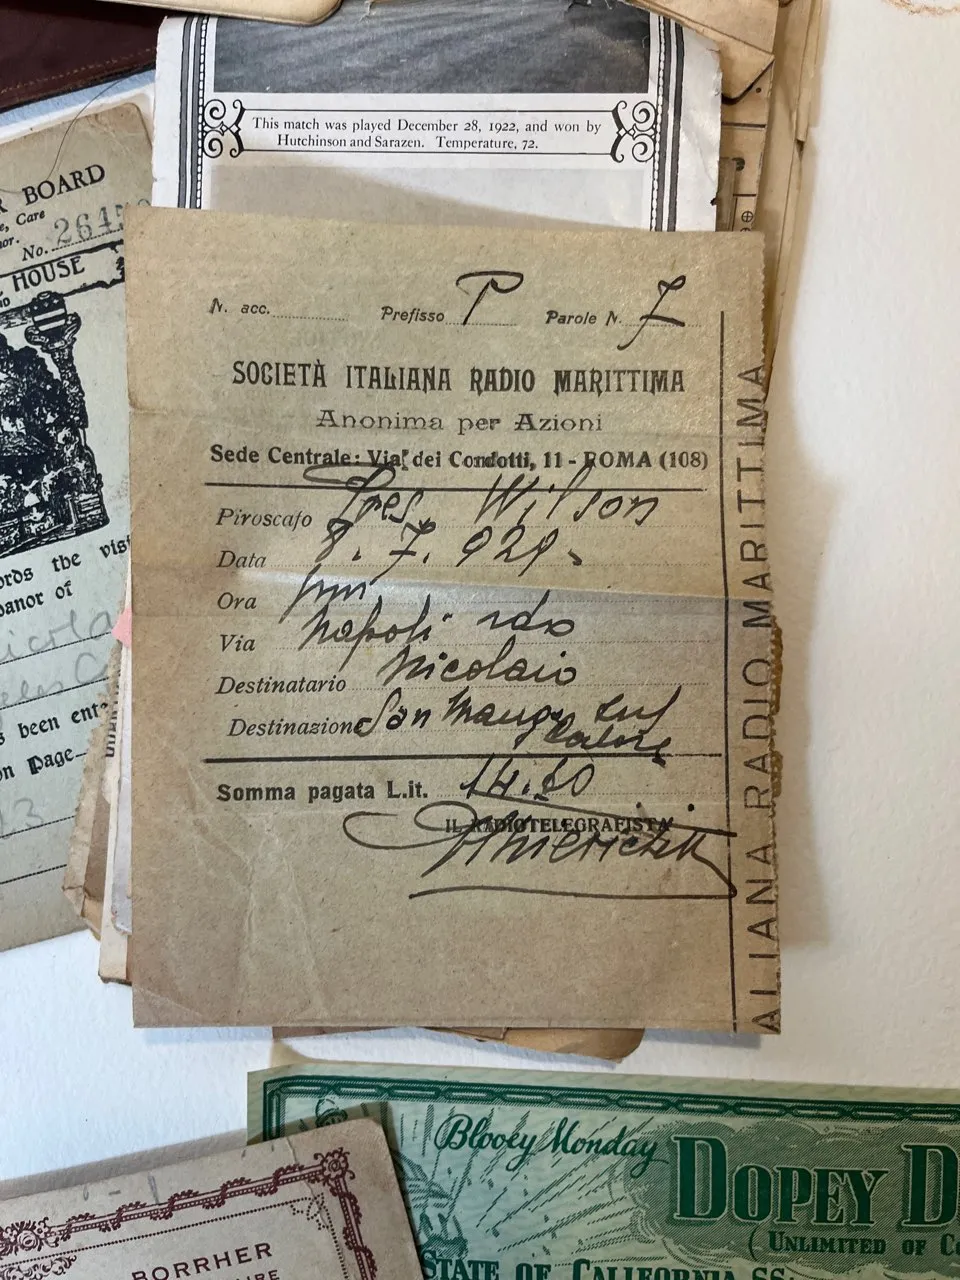 This match was played December 28, 1922, and won by
Hutchinson and Sarazen. Temperature, 72.
R BOARD
e, Care
No. 2645
HOUSE
N. acc. Prefisso P Parole N. 7
SOCIETÀ ITALIANA RADIO MARITTIMA
Anonima per Azioni
Sede Centrale: Via dei Condotti, 11 - ROMA (108)
Piroscafo Pres. Wilson
Data 8. 7. 929
Ora
Via Napoli rdo
Destinatario Nicolaio
Destinazione San Mango sul
Calore
Somma pagata L.it. 14.20
IL RADIOTELEGRAFISTA
ALIANA RADIO MARITTIMA
ords the visi
banor of
icola
s been ente
on Page
13
Blooey Monday
DOPEY D
(UNLIMITED OF CO
STATE OF CALIFORNIA SS
BORRHER
IRE